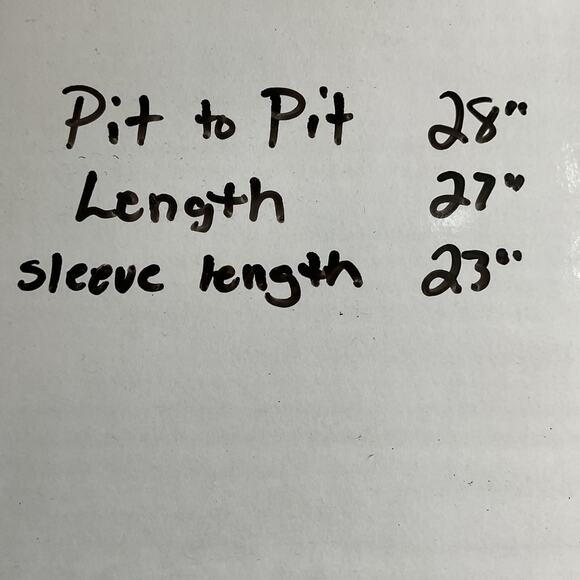 Pit to Pit 28"
Length 27"
sleeve length 23"